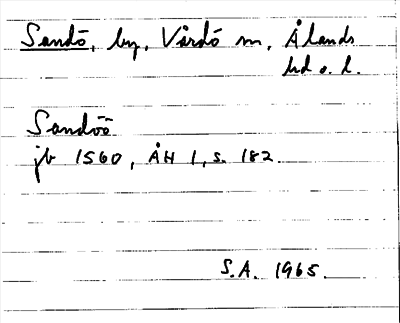 Sandö, by, Vårdö sn, Ålands
hd o. l.
Sandöö
jb 1560, ÅH 1, s. 182
S.A. 1965.